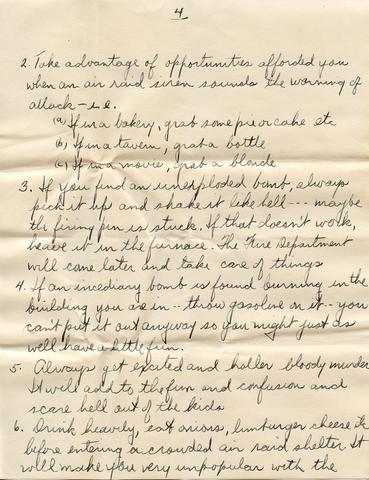 4
2. Take advantage of opportunities afforded you
when an air raid siren sounds the warning of
attack - i.e.
(a) If in a bakery, grab some pie or cake etc
(b) If in a tavern, grab a bottle
(c) If in a movie, grab a blonde
3. If you find an unexploded bomb, always
pick it up and shake it like hell --- maybe
the firing pin is stuck. If that doesn't work,
heave it in the furnace. The Fire Department
will come later and take care of things
4. If an incediary bomb is found burning in the
building you are in -- throw gasoline on it -- you
can't put it out anyway so you might just as
well have a little fun.
5. Always get excited and holler bloody murder
It will add to the fun and confusion and
scare hell out of the kids
6. Drink heavily, eat onions, limburger cheese etc
before entering a crowded air raid shelter. It
will make you very unpopular with the